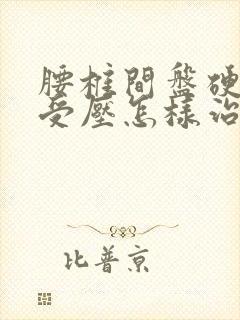 腰柱間盤硬
受壓怎樣治
比普京